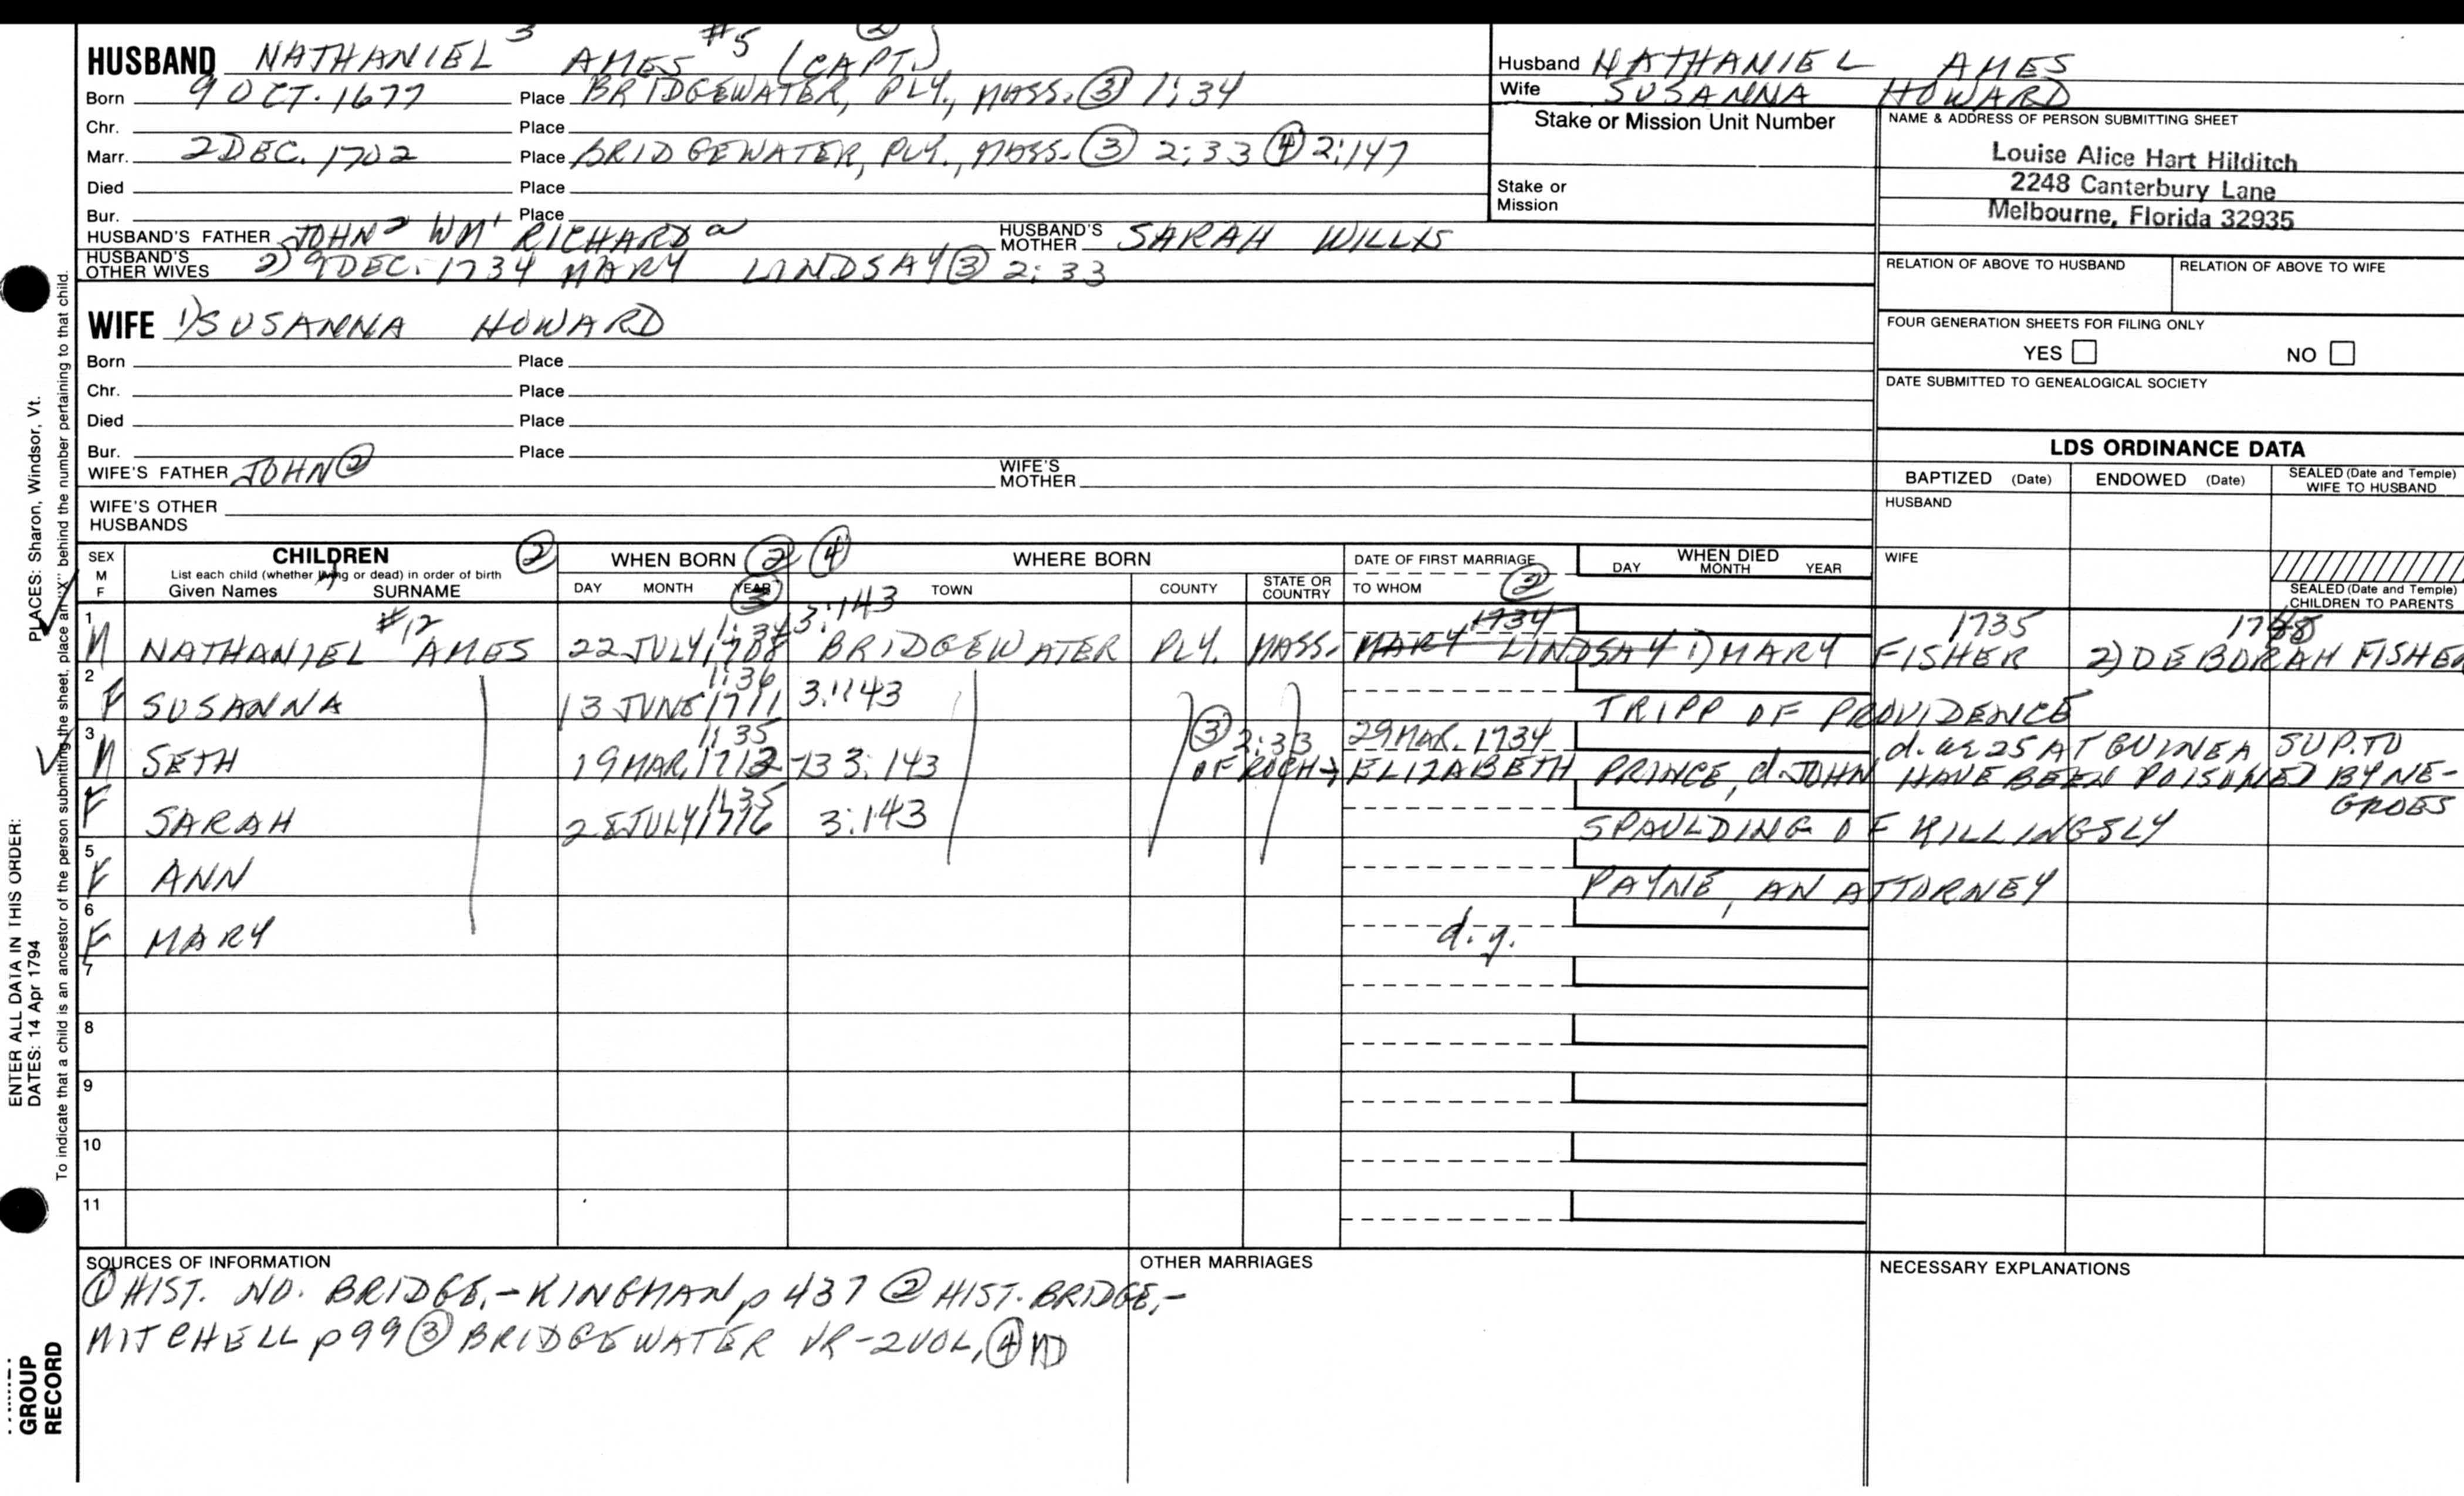 HUSBAND NATHANIEL 3 AMES #5 (CAPT.) ②
Born 9 OCT. 1677 Place BRIDGEWATER, PLY., MASS. ③ 1:34
Chr. Place
Marr. 2 DEC. 1702 Place BRIDGEWATER, PLY., MASS. ③ 2:33 ④ 2:147
Died Place
Bur. Place
HUSBAND'S FATHER JOHN 2 WM 1 RICHARD a HUSBAND'S MOTHER SARAH WILLIS
HUSBAND'S OTHER WIVES 2) 9 DEC. 1734 MARY LINDSAY ③ 2:33
Husband NATHANIEL AMES
Wife SUSANNA HOWARD
Stake or Mission Unit Number
Stake or Mission
NAME & ADDRESS OF PERSON SUBMITTING SHEET
Louise Alice Hart Hilditch
2248 Canterbury Lane
Melbourne, Florida 32935
RELATION OF ABOVE TO HUSBAND RELATION OF ABOVE TO WIFE
FOUR GENERATION SHEETS FOR FILING ONLY
YES NO
DATE SUBMITTED TO GENEALOGICAL SOCIETY
WIFE 1) SUSANNA HOWARD
Born Place
Chr. Place
Died Place
Bur. Place
WIFE'S FATHER JOHN ② WIFE'S MOTHER
WIFE'S OTHER HUSBANDS
LDS ORDINANCE DATA
BAPTIZED (Date) ENDOWED (Date) SEALED (Date and Temple) WIFE TO HUSBAND
HUSBAND
WIFE
SEALED (Date and Temple) CHILDREN TO PARENTS
SEX M F CHILDREN ② WHEN BORN ② ④ WHERE BORN DATE OF FIRST MARRIAGE WHEN DIED
List each child (whether living or dead) in order of birth
Given Names SURNAME DAY MONTH YEAR ③ TOWN COUNTY STATE OR COUNTRY TO WHOM ② DAY MONTH YEAR
1 #12 1:34 3:143 1734 1735
M NATHANIEL AMES 22 JULY 1708 BRIDGEWATER PLY. MASS. MARY LINDSAY 1) MARY FISHER 2) DEBORAH FISHER
2 1:36
F SUSANNA 13 JUNE 1711 3:143 TRIPP OF PROVIDENCE
3 1:35 ③ 2:33 29 MAR. 1734 d. ae 25 AT GUINEA SUP. TO
M SETH 19 MAR. 1712-13 3:143 OF ROCH → ELIZABETH PRINCE, d. JOHN HAVE BEEN POISONED BY NE-
GROES
1:35
F SARAH 28 JULY 1716 3:143 SPAULDING OF KILLINGSLY
5
F ANN PAYNE, AN ATTORNEY
6
F MARY d.y.
7
8
9
10
11
SOURCES OF INFORMATION
① HIST. NO. BRIDGE.-KINGMAN p 437 ② HIST. BRIDGE,-
MITCHELL p 99 ③ BRIDGEWATER VR-2VOL, ④ MD
OTHER MARRIAGES
NECESSARY EXPLANATIONS
ENTER ALL DATA IN THIS ORDER:
DATES: 14 Apr 1794 PLACES: Sharon, Windsor, Vt.
To indicate that a child is an ancestor of the person submitting the sheet, place an "X" behind the number pertaining to that child.
GROUP
RECORD